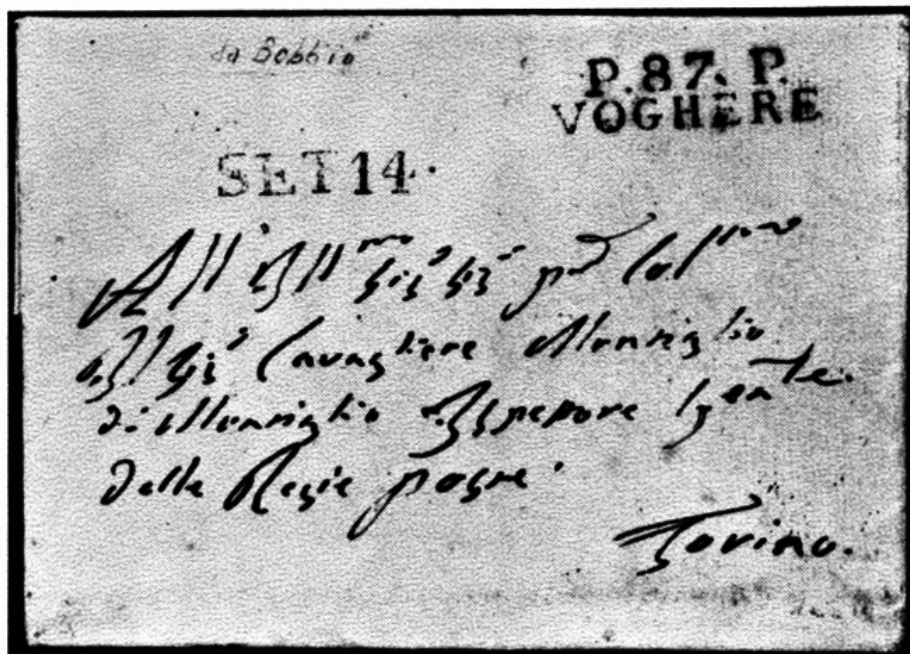 da Bobbio
P.87.P.
VOGHERE
SET 14
All' Ill.mo Sig.r Sig.r p.ne Col.mo
Il Sig.r Cavagliere Monriglio
di Monriglio Ispettore Gen.le
delle Regie poste
Torino.